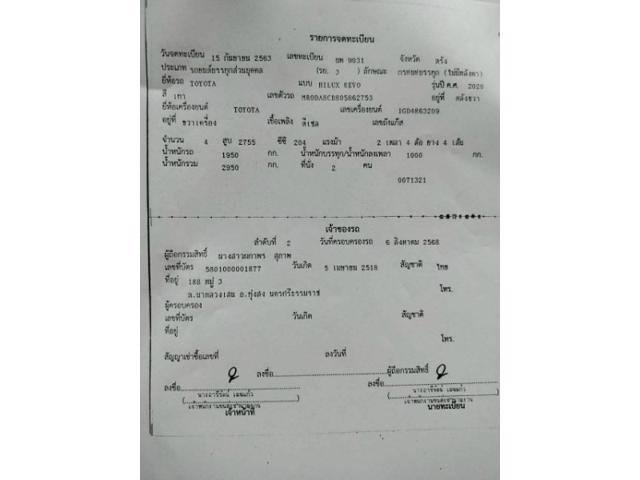 รายการจดทะเบียน
วันจดทะเบียน 15 กันยายน 2563 เลขทะเบียน ผพ 9931 จังหวัด ตรัง
ประเภท รถยนต์บรรทุกส่วนบุคคล (รย. 3 ) ลักษณะ กระบะบรรทุก (ไม่มีหลังคา)
ยี่ห้อรถ TOYOTA แบบ HILUX REVO รุ่นปี ค.ศ. 2020
สี เทา เลขตัวรถ MR0DA8CD805862753 อยู่ที่
ยี่ห้อเครื่องยนต์ TOYOTA เลขเครื่องยนต์ 1GD4863209
อยู่ที่ ขวาเครื่อง เชื้อเพลิง ดีเซล เลขถังแก๊ส
จำนวน 4 สูบ 2755 ซีซี 204 แรงม้า 2 เพลา 4 ล้อ ยาง 4 เส้น
น้ำหนักรถ 1950 กก. น้ำหนักบรรทุก/น้ำหนักลงเพลา 1000 กก.
น้ำหนักรวม 2950 กก. ที่นั่ง 2 คน
0071321
เจ้าของรถ
ลำดับที่ 2 วันที่ครอบครองรถ 6 สิงหาคม 2568
ผู้ถือกรรมสิทธิ์ นางสาวผกาพร สุภาพ
เลขที่บัตร 5801000001877 วันเกิด 5 เมษายน 2518 สัญชาติ ไทย
ที่อยู่ 188 หมู่ 3 โทร.
ต.นาหลวงเสน อ.ทุ่งสง นครศรีธรรมราช
ผู้ครอบครอง
เลขที่บัตร วันเกิด สัญชาติ
ที่อยู่
โทร.
สัญญาเช่าซื้อเลขที่ ลงวันที่
ลงชื่อ ผู้ถือกรรมสิทธิ์
ลงชื่อ ลงชื่อ
เจ้าหน้าที่ นายทะเบียน